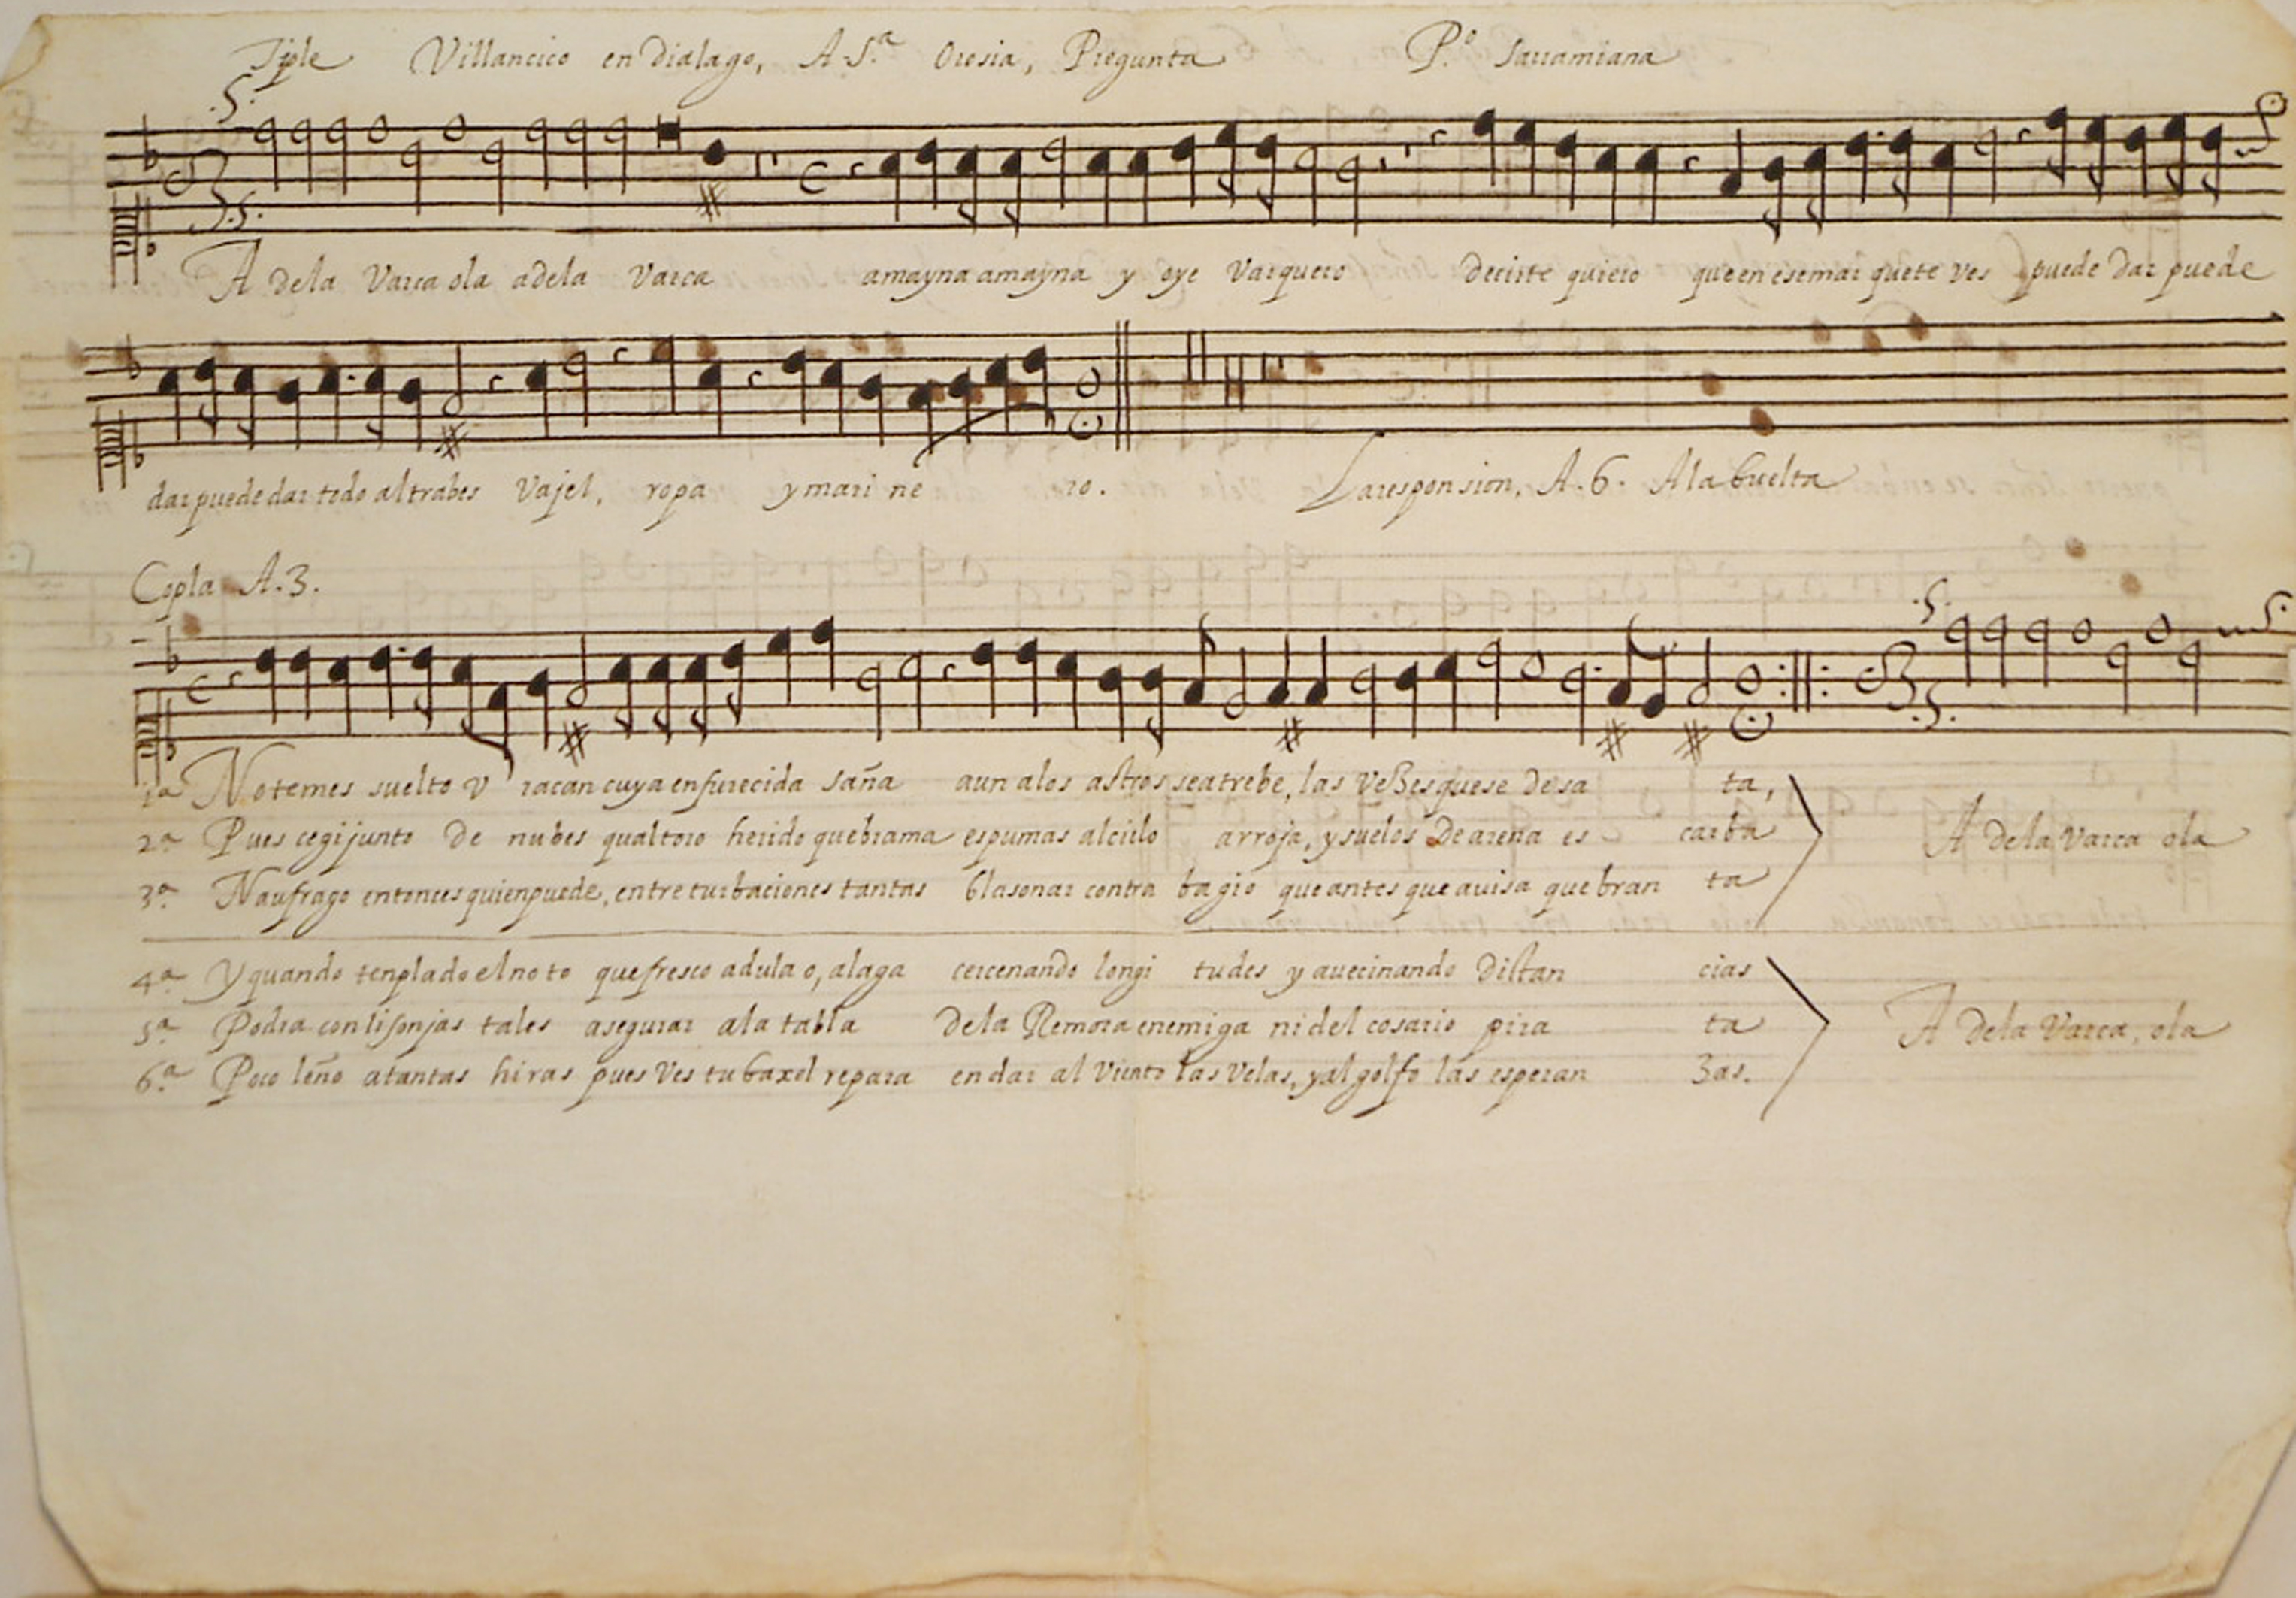 Tiple Villancico en Dialago, A S.ª Orosia, Pregunta P.º Sarramiana
A dela Varca ola adela Varca amayna amayna y oye Varquero decirte quiero queen esemar quete ves puede dar puede
dar puede dar todo altrabes Vajel, ropa y mari ne ro. La responsion, A.6. A la buelta
Copla A.3.
1ª No temes suelto v racan cuya enfurecida saña aun alos astros seatrebe, las veßes quese desa ta,
2ª Pues cegijunto de nubes qual toro herido quebrama espumas alcielo arroja, y suelos De arena es carba A dela Varca ola
3ª Naufrago entonces quienpuede, entre turbaciones tantas blasonar contra bagio que antes que avisa quebran ta
4ª Y quando tenplado el noto que fresco adula o, alaga cercenando longi tudes y avecinando distan cias
5ª Podra con lisonjas tales asegurar ala tabla dela Remora enemiga ni del cosario pira ta A dela Varca, ola
6ª Poco leño atantas hiras pues Ves tu baxel repara en dar al Viento las Velas, y al golfo las esperan zas.